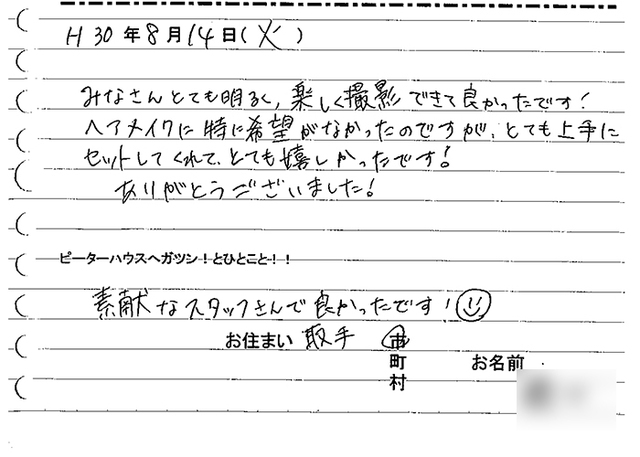 H 30 年 8 月 14 日 (火)
みなさんとても明るく、楽しく撮影できて良かったです!
ヘアメイクに特に希望がなかったのですが、とても上手に
セットしてくれて、とても嬉しかったです!
ありがとうございました!
ピーターハウスへガツン!とひとこと!!
素献なスタッフさんで良かったです!
お住まい 取手 市
町 お名前
村